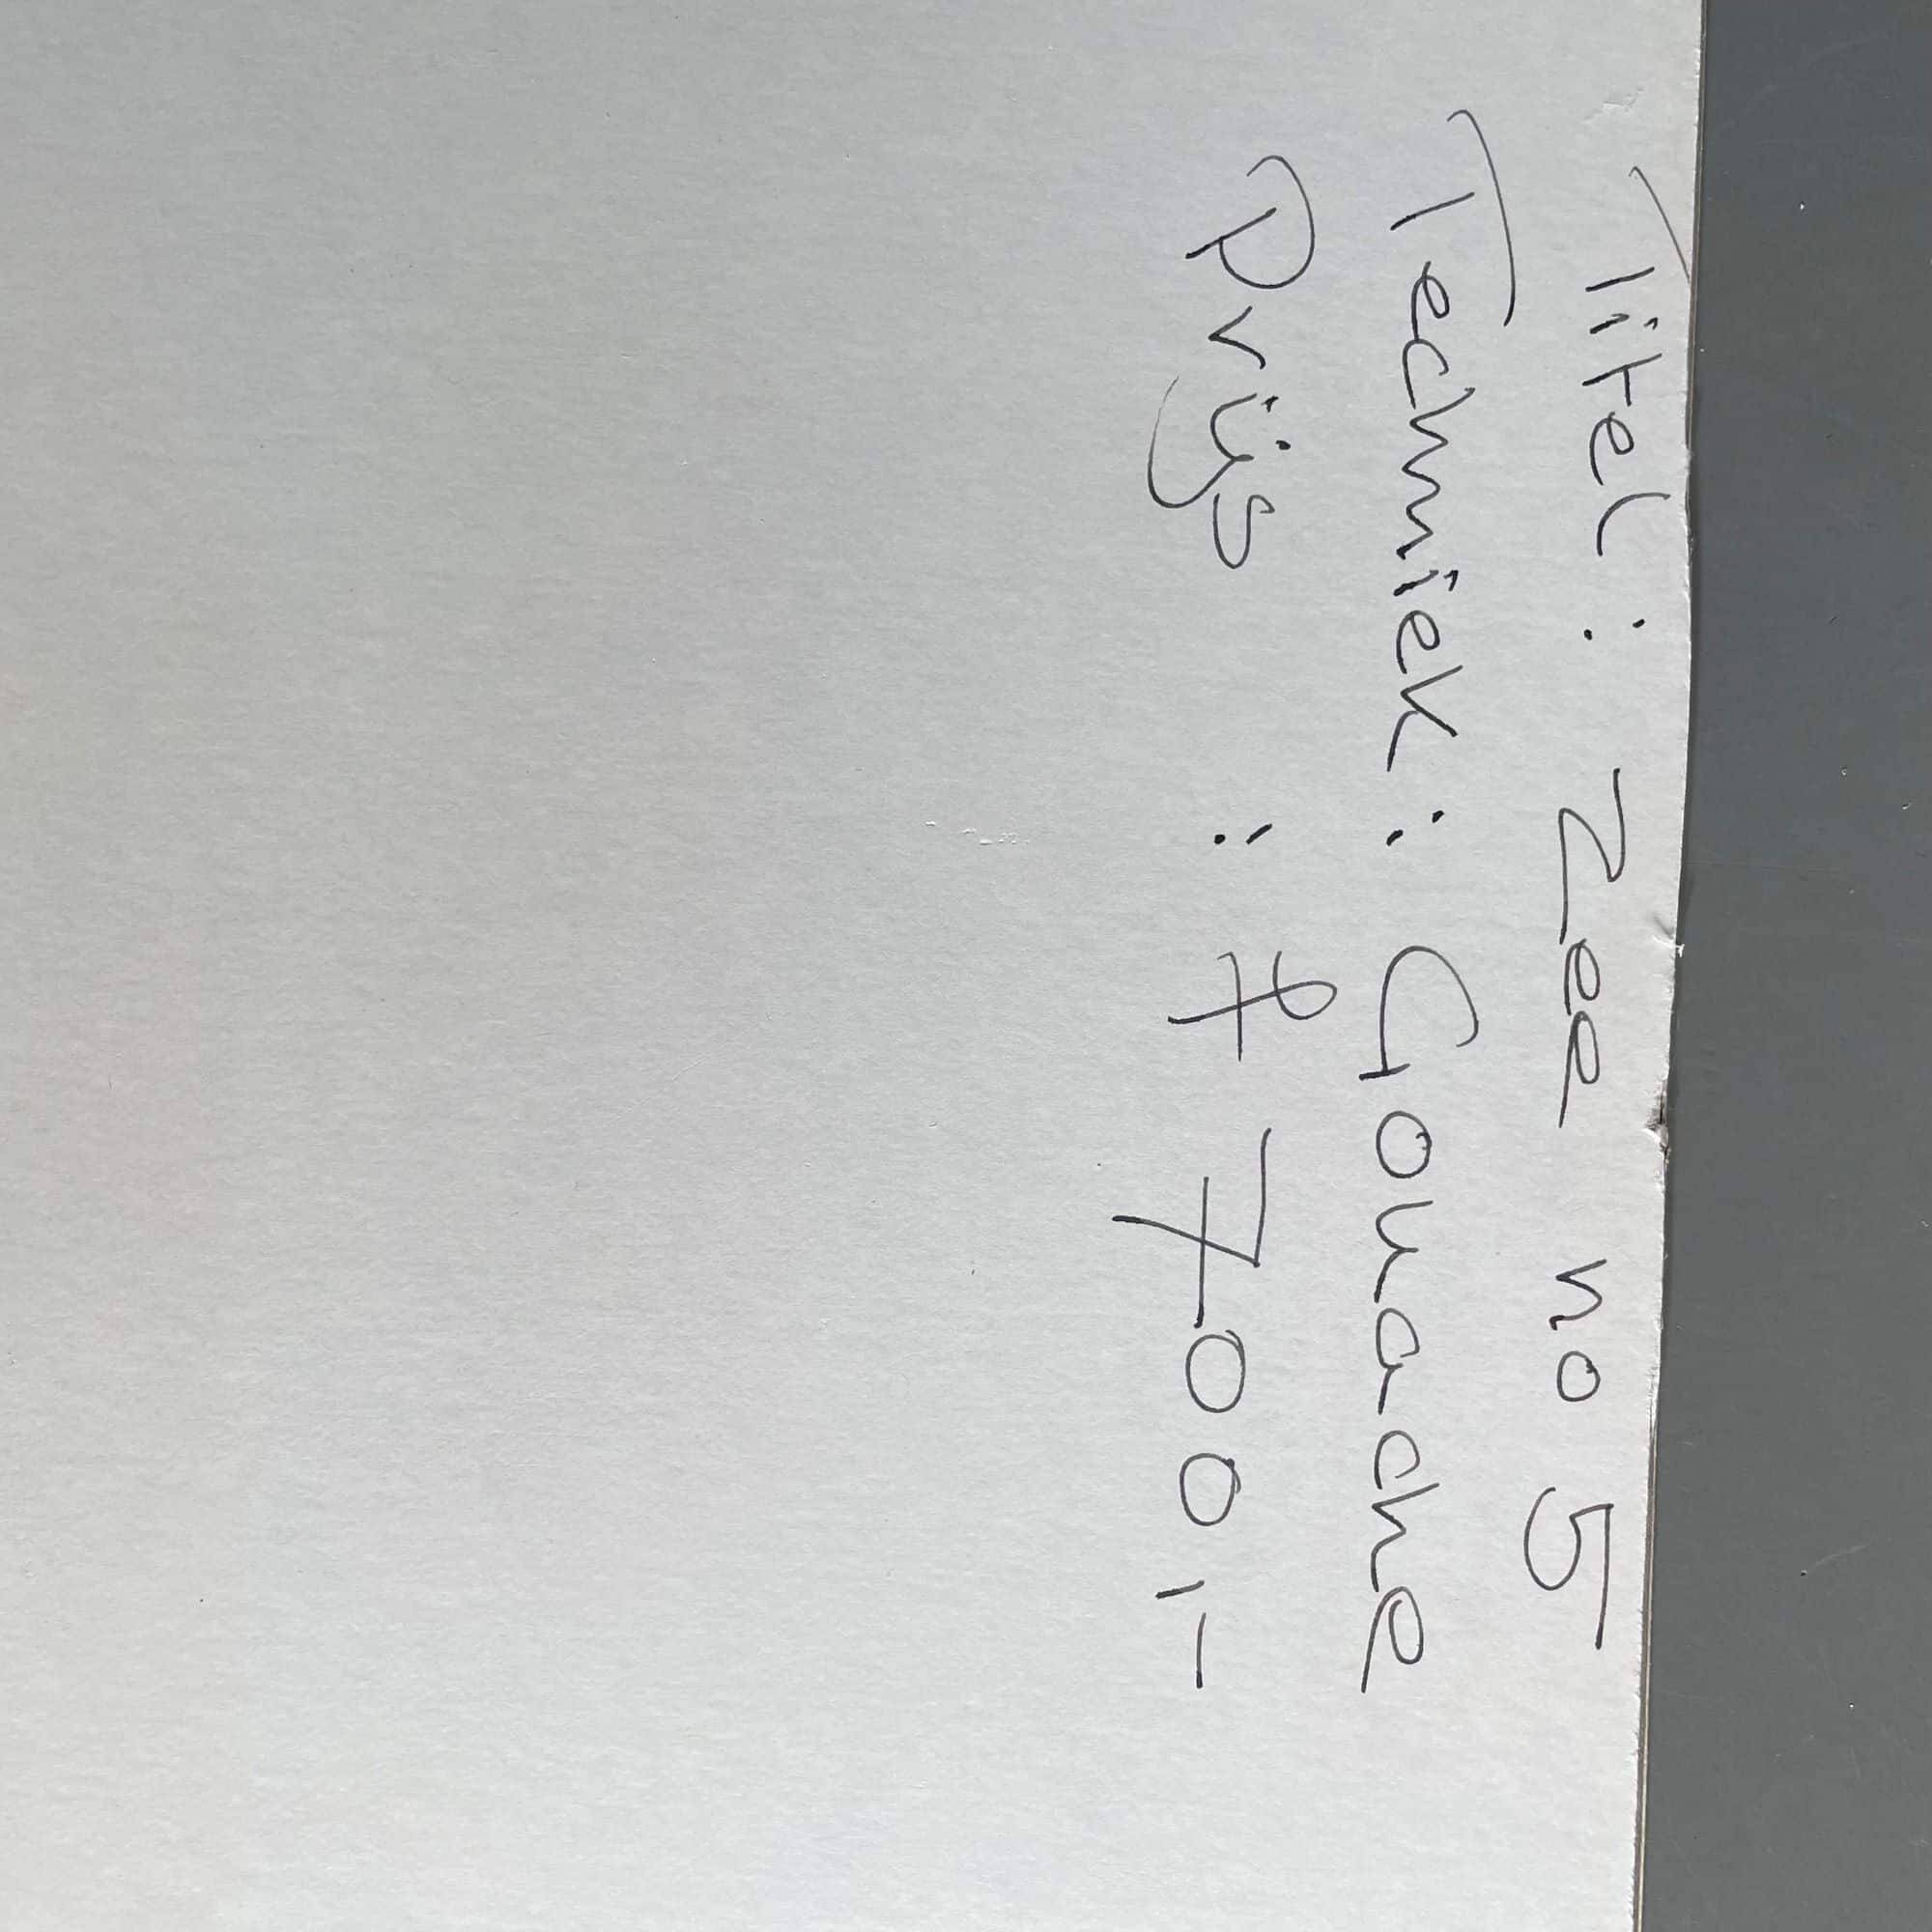 Titel: Zee no 5
Techniek: Gouache
Prijs : ƒ 700,-